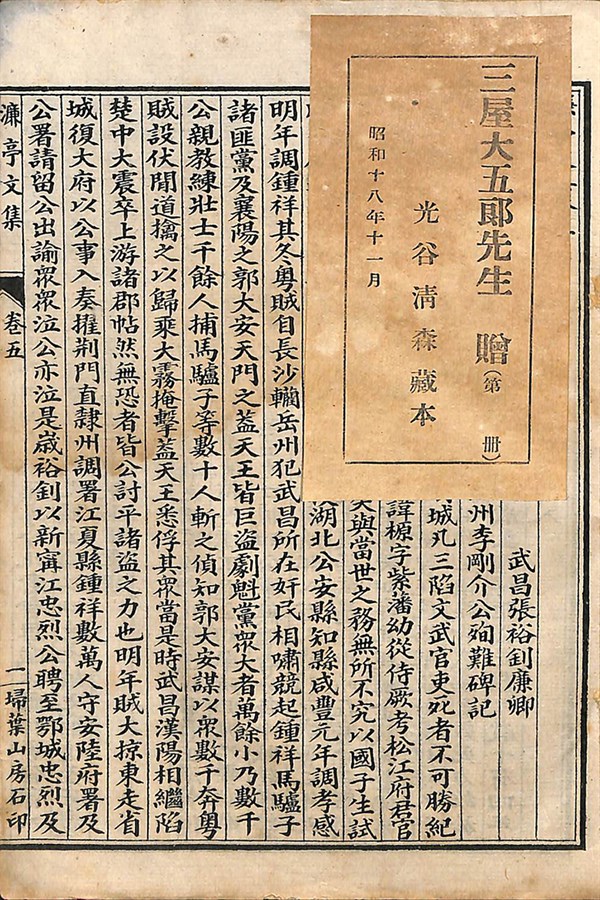 三屋大五郎先生 贈(第 冊)
光谷清森藏本
昭和十八年十一月
武昌張裕釗廉卿
州李剛介公殉難碑記
城凡三陷文武官吏死者不可勝紀
諱榞字紫藩幼從侍厥考松江府君官
與當世之務無所不究以國子生試
湖北公安縣知縣咸豐元年調孝感
明年調鍾祥其冬粵賊自長沙轥岳州犯武昌所在奸民相嘯競起鍾祥馬驢子
諸匪黨及襄陽之郭大安天門之蓋天王皆巨盜劇魁黨衆大者萬餘小乃數千
公親教練壯士千餘人捕馬驢子等數十人斬之偵知郭大安謀以衆數千奔粵
賊設伏閒道擒之以歸乘大霧掩擊蓋天王悉俘其衆當是時武昌漢陽相繼陷
楚中大震卒上游諸郡帖然無恐者皆公討平諸盜之力也明年賊大掠東走省
城復大府以公事入奏擢荆門直隸州調署江夏縣鍾祥數萬人守安陸府署及
公署請留公出諭衆衆泣公亦泣是歲裕釗以新甯江忠烈公聘至鄂城忠烈及
濂亭文集 卷五 二 掃葉山房石印